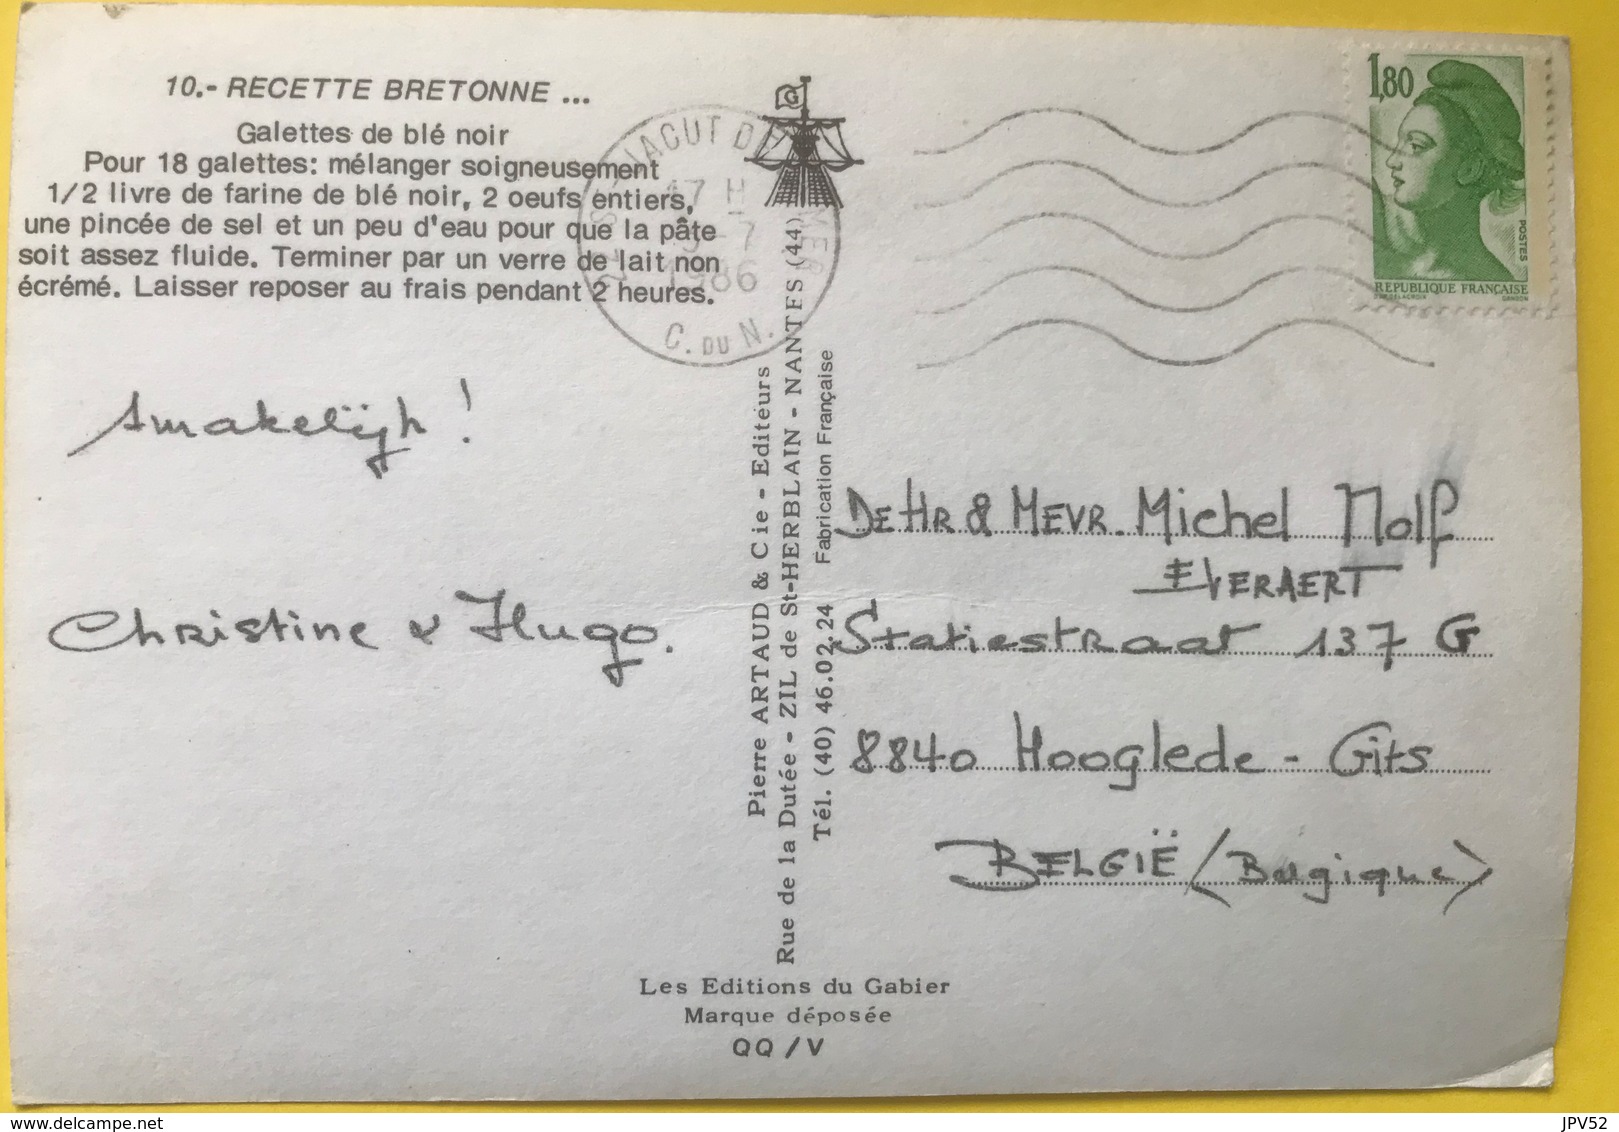 10.- RECETTE BRETONNE ...
Galettes de blé noir
Pour 18 galettes: mélanger soigneusement
1/2 livre de farine de blé noir, 2 oeufs entiers,
une pincée de sel et un peu d'eau pour que la pâte
soit assez fluide. Terminer par un verre de lait non
écrémé. Laisser reposer au frais pendant 2 heures.
Smakelijk !
Christine & Hugo.
G
JACUT DE MER
17 H
-7
1986
C. DU N.
Pierre ARTAUD & Cie - Editeurs
Rue de la Dutée - ZIL de St-HERBLAIN - NANTES (44)
Tél. (40) 46.02.24 Fabrication Française
1,80
POSTES
REPUBLIQUE FRANÇAISE
GANDON
DE HR & MEVR. Michel Nolf
EVERAERT
Statiestraat 137 G
8840 Hooglede - Gits
BELGIË / (Belgique)
Les Editions du Gabier
Marque déposée
QQ/V
JPV52